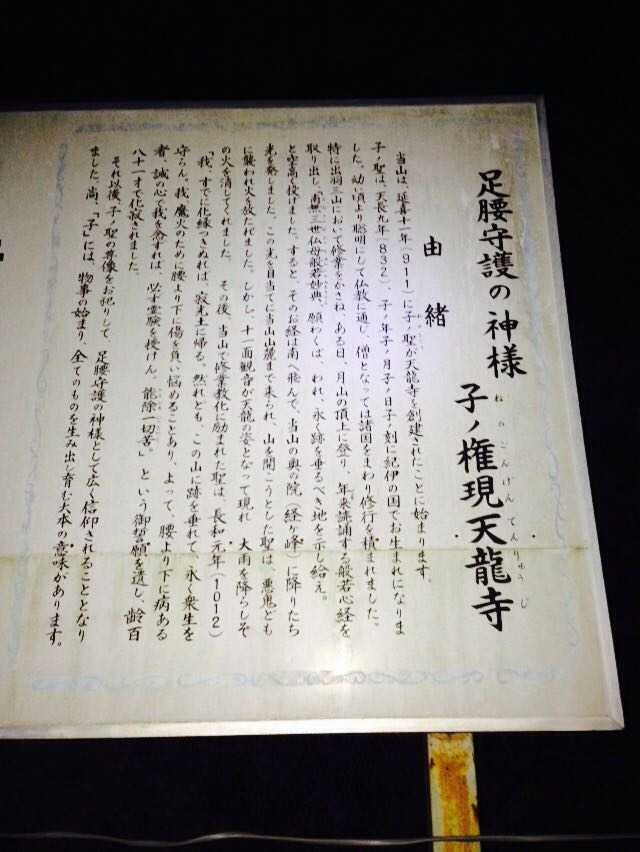 足腰守護の神様
子ノ権現天龍寺
ねのごんげんてんりゅうじ
由緒
当山は、延喜十一年(911)に子ノ聖が天龍寺を創建されたことに始まります。
子ノ聖は、天長九年(832)、子ノ年子ノ月子ノ日子ノ刻に紀伊の国でお生まれになりま
した。幼い頃より聡明にして仏教に通し、僧となっては諸国をまわり修行を積まれました。
特に出羽三山において修業をかさね、ある日、月山の頂上に登り、年来誦誦する般若心経を
取り出し、南無三世仏母般若妙典、願わくば、われ、永く跡を垂るべき地を示し給え。
と空高く投げました。すると、そのお経は南へ飛んで、当山の奥の院(経ヶ峰)に降りたち
光を発しました。この光を目当てに当山山麓まで来られ、山を開こうとした聖は、悪鬼ども
に襲われ火を放たれました。しかし、十一面観音が天龍の姿となって現れ 大雨を降らしそ
の火を消してくれました。 その後、当山で修業教化に励まれた聖は、長和元年(1012)
「我、すでに化縁つきぬれば、寂光土に帰る。然れども、この山に跡を垂れて、永く衆生を
守らん。我、魔火のために腰より下に傷を負い悩めることあり、よって、腰より下に病ある
者、誠の心で我を念ずれば、必ず霊験を授けん。能除一切苦。」という御誓願を遺し、齢百
八十一才で化寂されました。
それ以後、子ノ聖の尊像をお祀りして、足腰守護の神様として広く信仰されることとなり
ました。尚、「子」には、物事の始まり、全てのものを生み出し育む大本の意味があります。